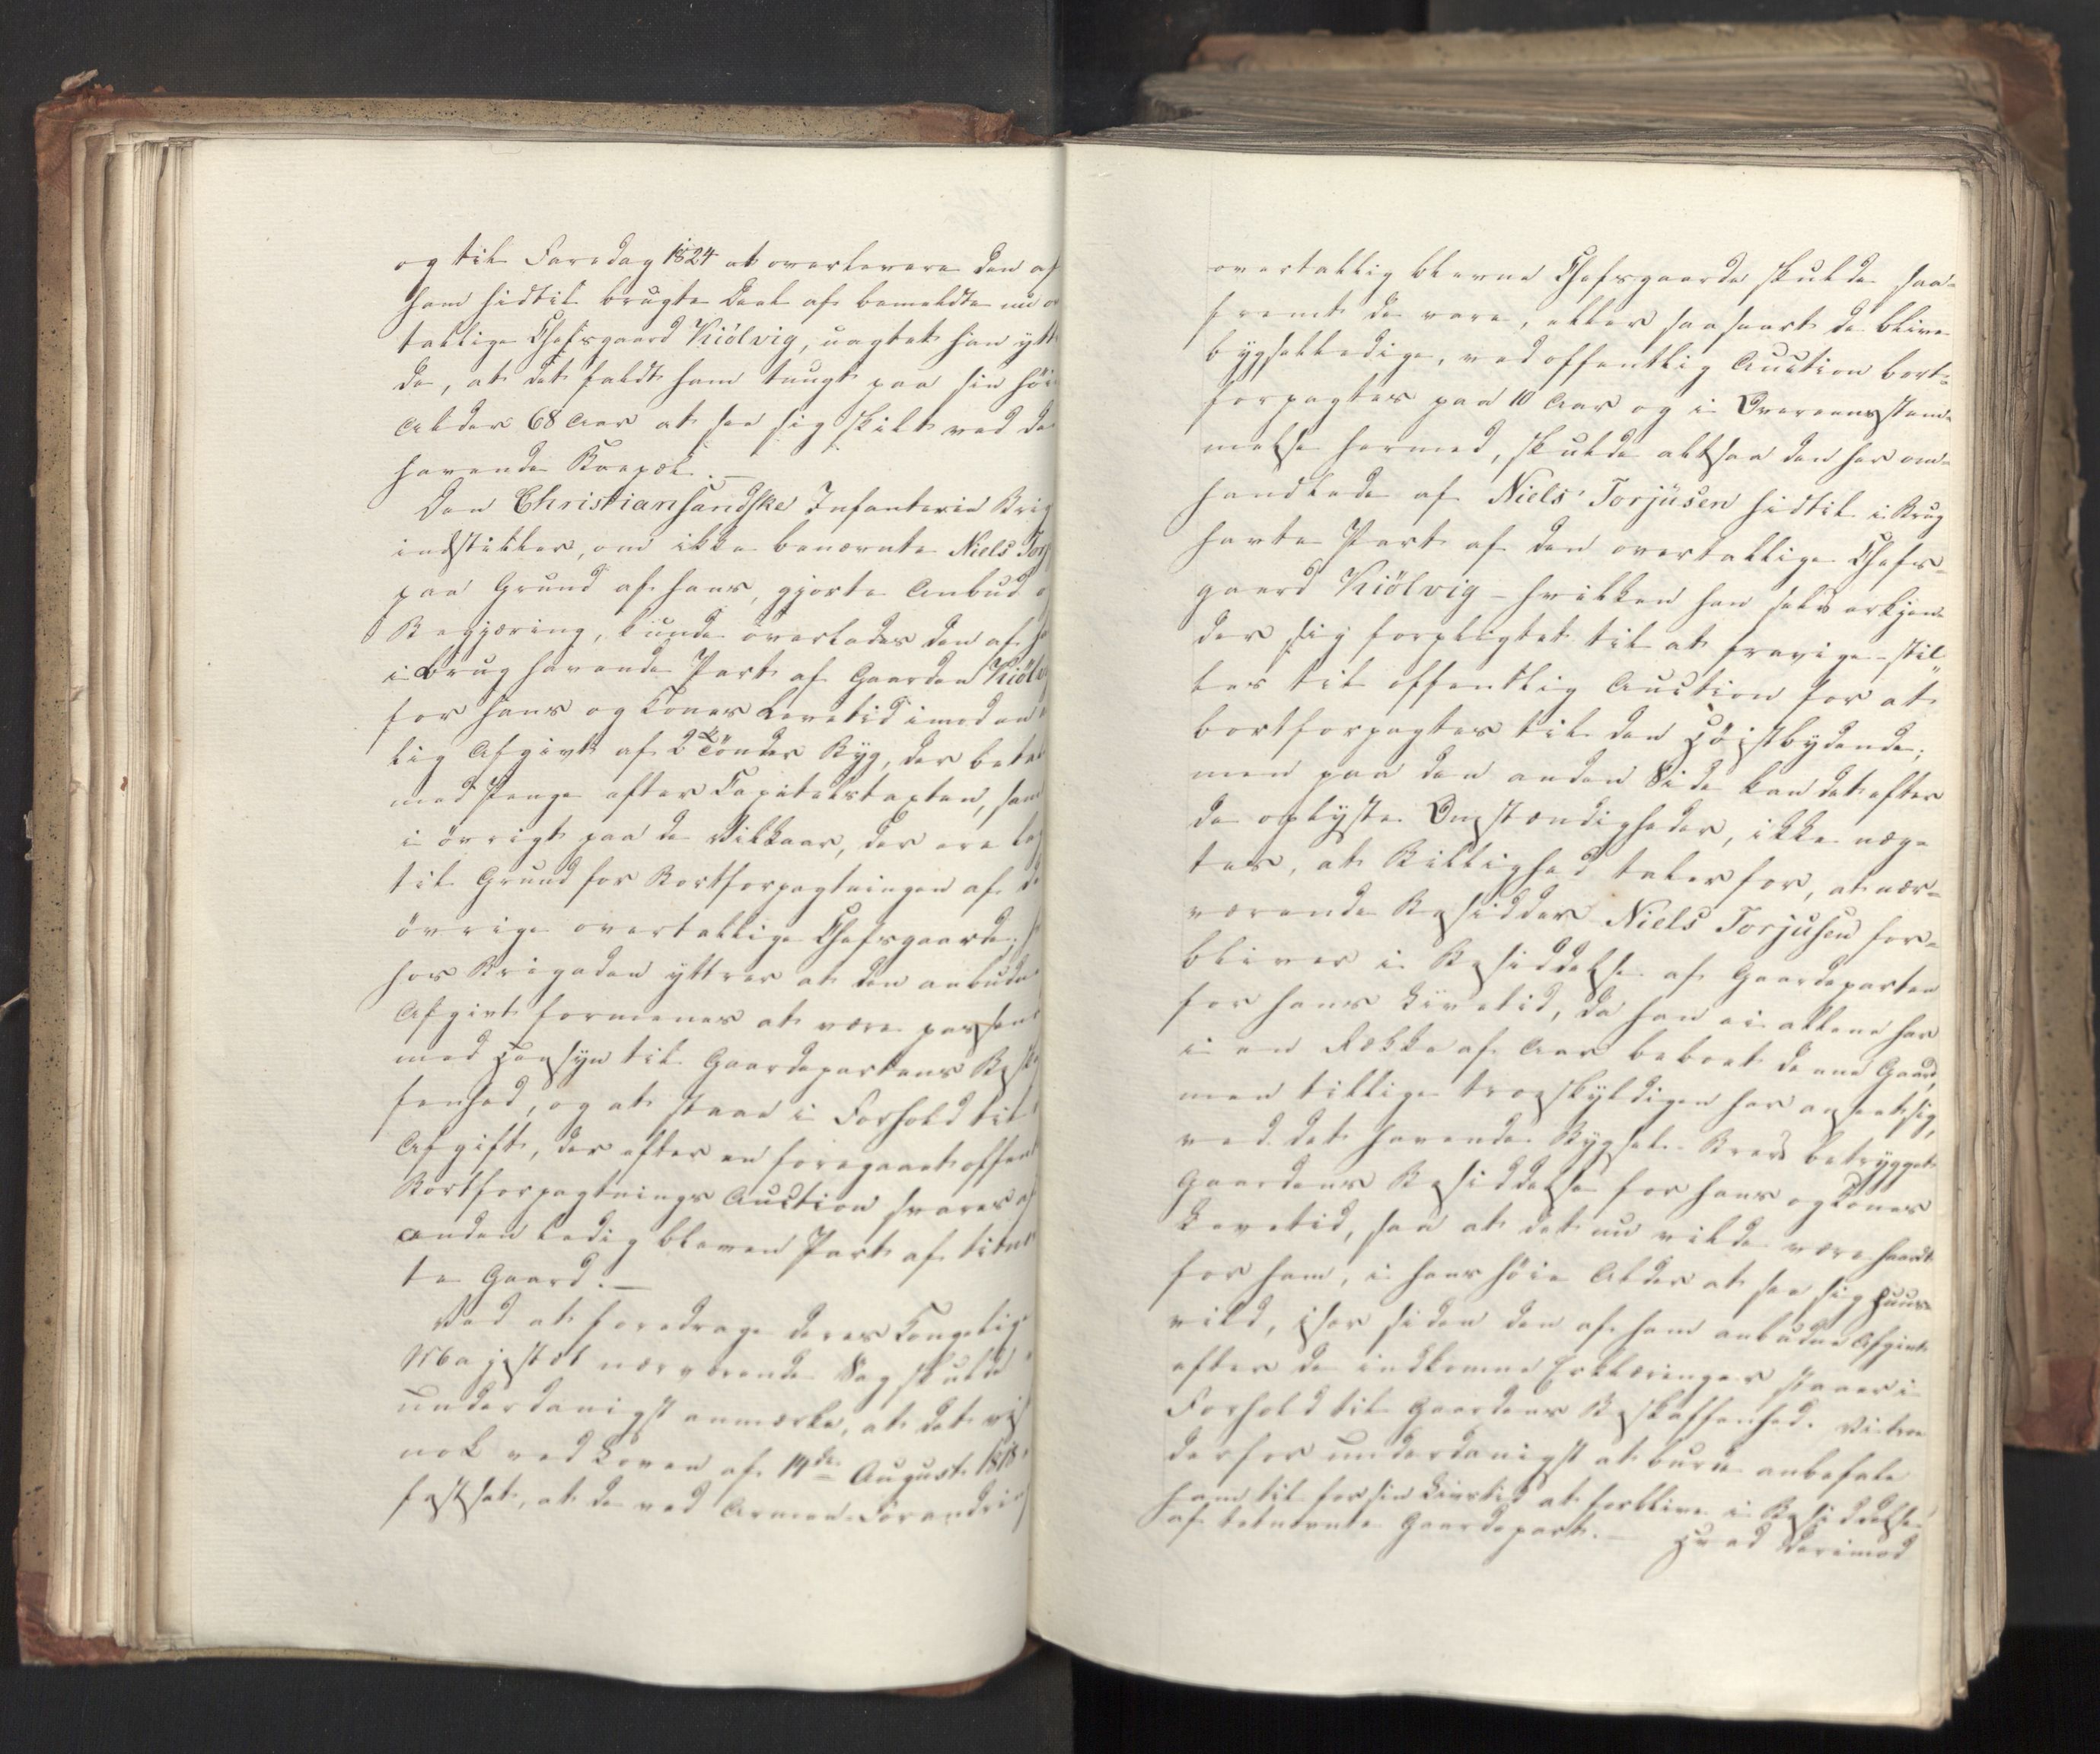 og til Faredag 1824 at overlevere den af
ham hidtil brugte Deel af bemeldte nu o
tallige Chefsgaard Kiölvig, uagtet han ytt
de, at det faldt ham tungt paa sin höi
Alder 68 Aar at see sig skilt ved de
havende Boepæl.—
Den Christiansandske Infanterie Brig
indstiller, om ikke benævnte Niels Torj
paa Grund af hans gjorte Anbud o
Begjæring, kunde overlades den af h
i Brug havende Part af Gaarden Kiölv
for hans og Kones Levetid imod en
lig Afgivt af 2de Tönder Byg, der betal
med Penge efter Capitelstaxten, sam
i övrigt paa de Vilkaar, der ere lag
til Grund for Bortforpagtningen af de
övrige overtallige Chefsgaarde;
hos Brigaden yttres at den anbudne
Afgivt formenes at være passend
med Hensyn til Gaardepartens Beska
fenhed, og at staae i Forhold til
Afgift, der efter en foregaaet offent
Bortforpagtnings Auction svares af
anden ledig bleven Part af bem
te Gaard.—
Ved at foredrage Deres Kongelige
Majestæt nærværende Sag skulde
underdanigst anmærke, at det vis
nok ved Loven af 14de August 1818
fastsat, at de ved Armee-Forandrin
overtallig blevne Chefsgaarde skulde saa-
fremt de vare, eller saasnart de blive
bygselledige, ved offentlig Auction bort-
forpagtes paa 10 Aar og i Overeensstem-
melse hermed, skulde altsaa den her om-
handlede af Niels Torjüsen hidtil i Brug
havte Part af den overtallige Chefs-
gaard Kiölvig – hvilken han selv erkjen-
der sig forpligtet til at fravige – stil-
les til offentlig Auction for at
bortforpagtes til den Höistbydende;
men paa den anden Side kan det efter
de oplyste Omstændigheder, ikke næg-
tes, at Billighed taler for, at nær-
værende Besidder Niels Torjusen for-
bliver i Besiddelse af Gaardeparten
for hans Livetid, da han ei allene har
i en Række af Aar beboet denne Gaard,
men tillige troeskyldigen har anseet sig,
ved det havende Bygsel-Brev betrygget
Gaardens Besiddelse for hans og Kones
Levetid, saa at det nu vilde være haardt
for ham, i hans höie Alder at see sig Huus-
vild, især siden den af ham anbudne Afgivt
efter de indkomne Erklæringer staaer i
Forhold til Gaardens Beskaffenhed. Vi troe
derfor underdanigst at burde anbefale
ham til for sin Livstid at forblive i Besiddelse
af bemeldte Gaardepart.— Hvad derimod